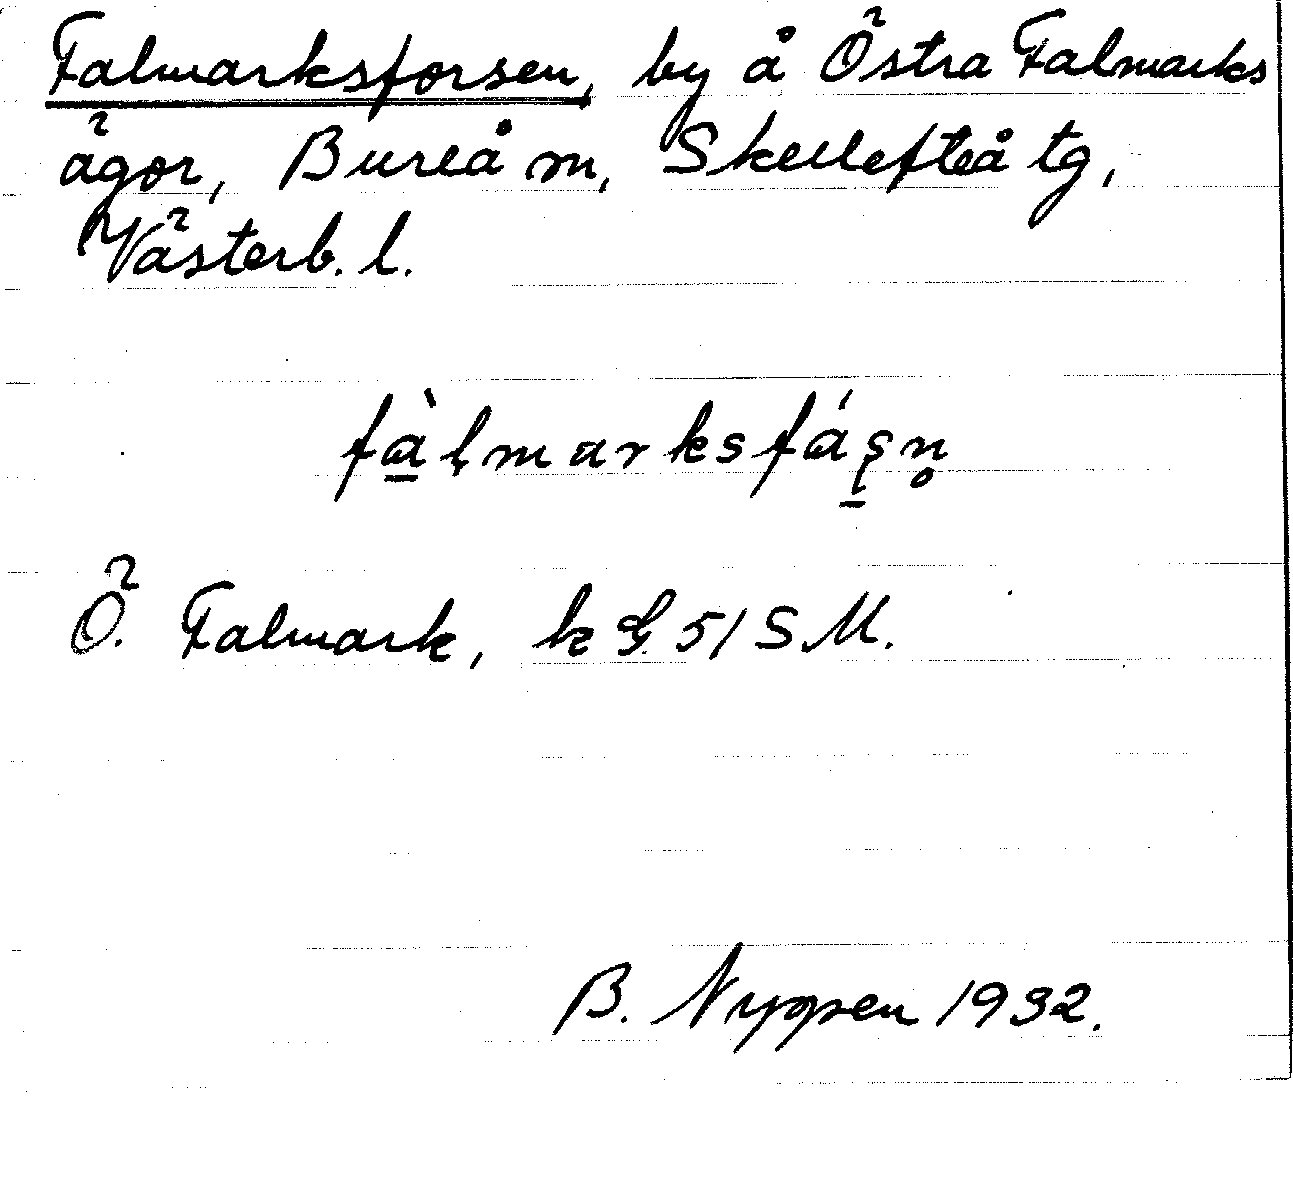 Falmarksforsen, by å Östra Falmarks
ägor, Bureå m, Skellefteå tg,
Västerb. l.
fà̱lmarksfáʂn̥
Ö. Falmark, k G. 51 SM.
B. 1932.